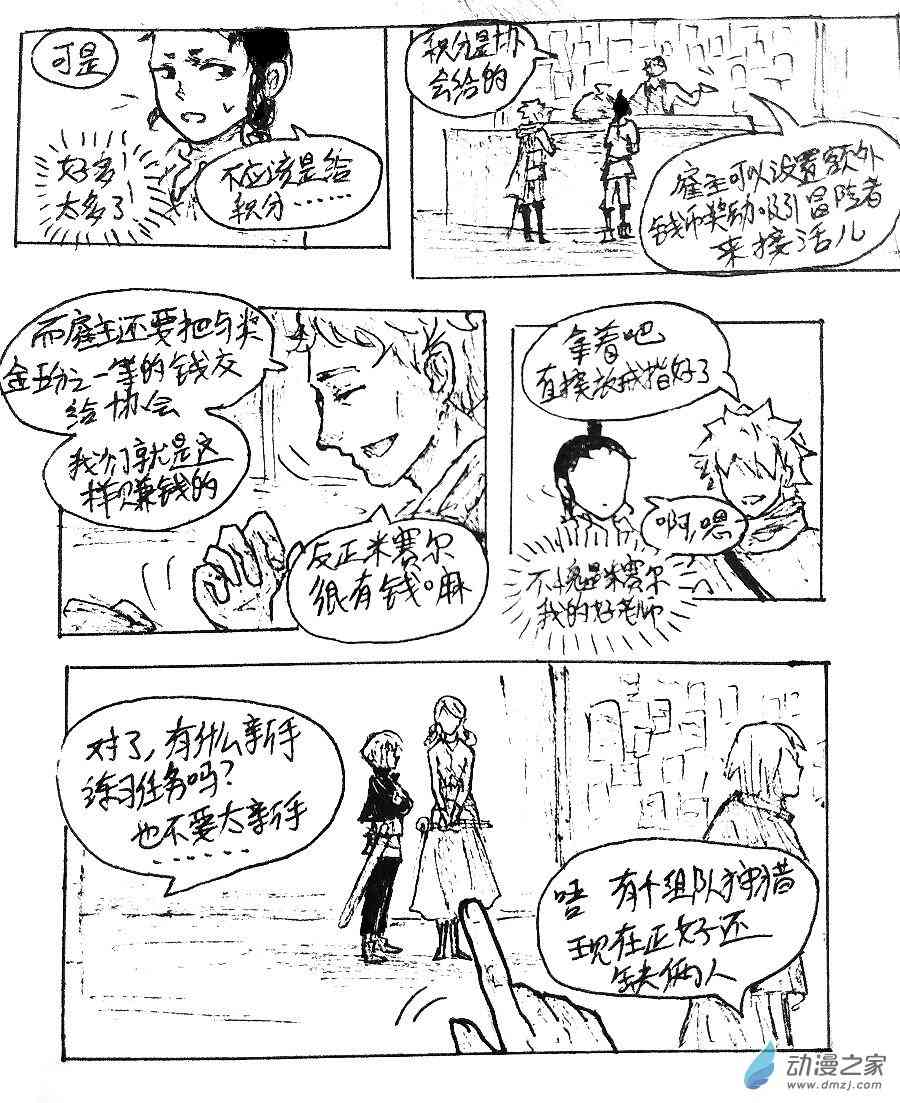 可是
好多
太多了
不应该是给
积分……
积分是协
会给的
雇主可以设置额外
钱币奖励吸引冒险者
来接活儿
而雇主还要把与奖
金五分之一等的钱交
给协会
我们就是这
样赚钱的
反正米赛尔
很有钱。嘛
拿着吧
直接放戒指好了
啊,嗯
不愧是米赛尔
我的好老师
对了,有什么新手
练习任务吗?
也不要太新手
……
唔 有个组队狩猎
现在正好还
缺俩人
动漫之家
www.dmzj.com